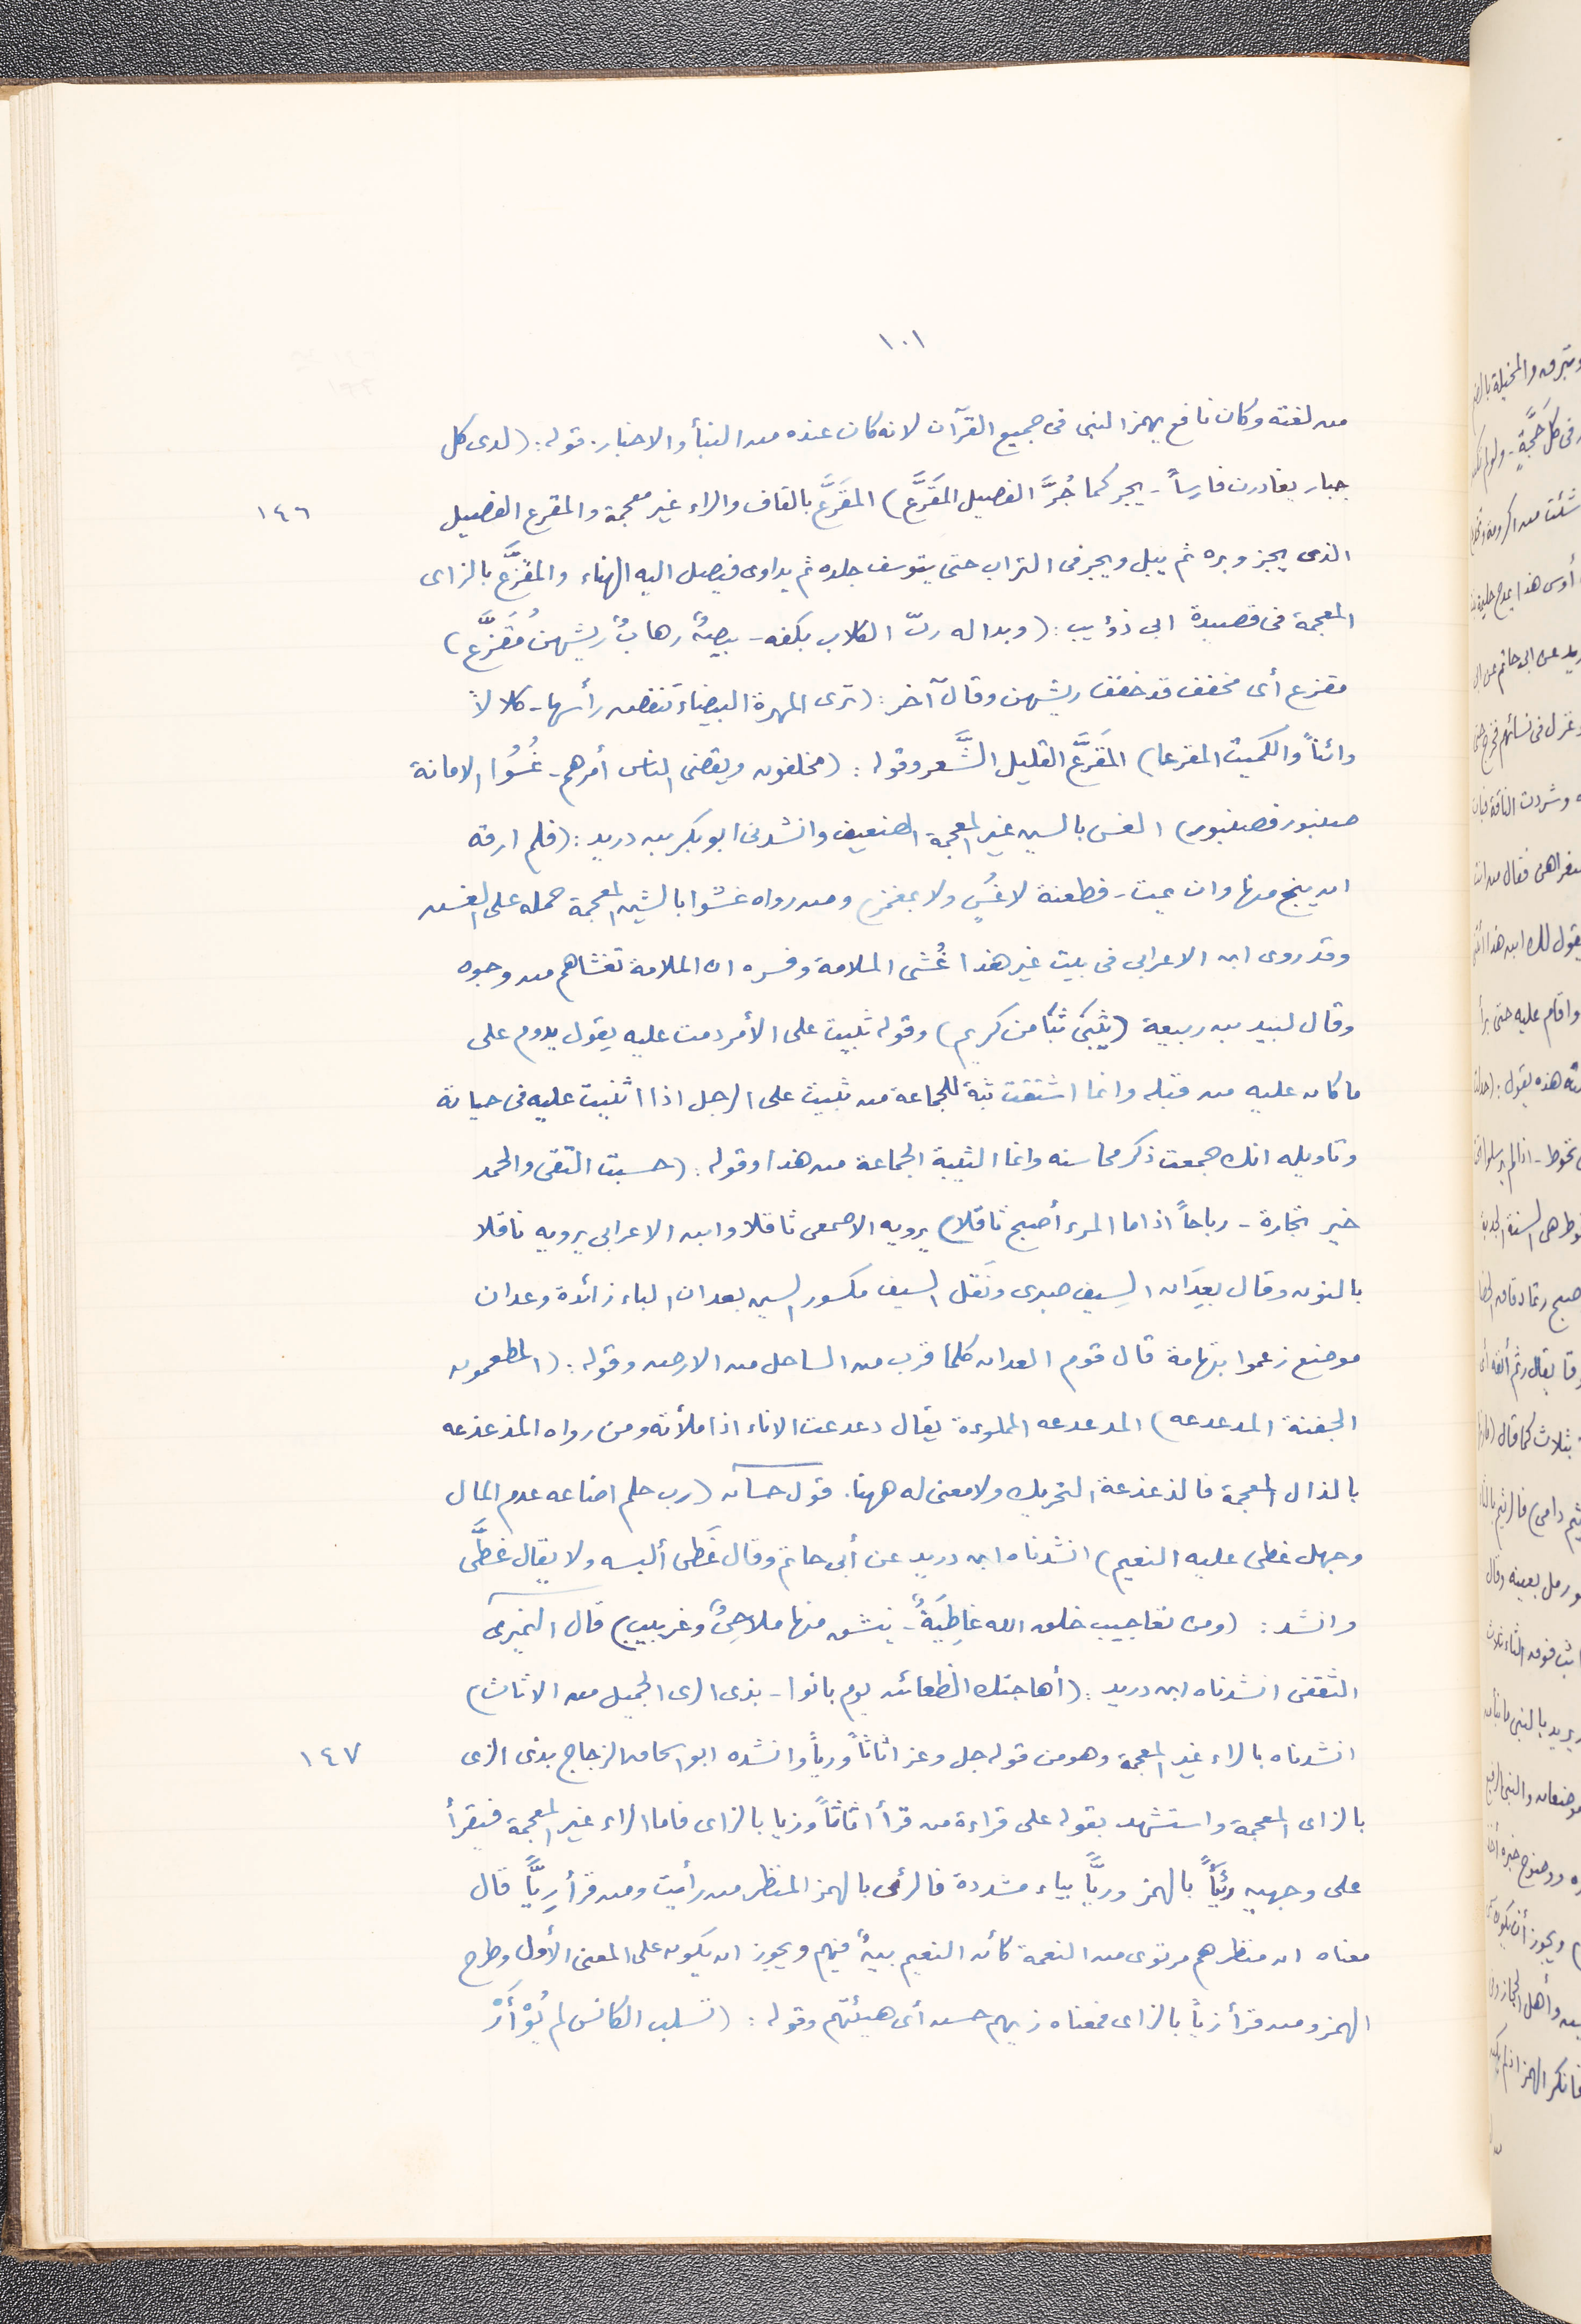 ١٠١
من لغته وكان نافع يهمز النبى فى جميع القرآن لانه كان عنده من النبأ والاخبار. قوله: (لدى كل
جبار يغادرن فارساً - يجر كما جُرَّ الفصيل المقَرَّع) المقَرَّع بالقاف والراء غير معجمة والمقرع الفصيل
١٤٦
الذى يجز وبره ثم يبل ويجر فى التراب حتى يتوسف جلده ثم يداوى فيصل اليه الهناء والمقزَّع بالزاى
المعجمة فى قصيدة ابى ذؤيب: (وبدا له ربّ الكلاب بكفه - بيضٌ رهابٌ ريشهن مُقَزَّع)
مقزع أى مخفف قد خفف ريشهن وقال آخر: (ترى المهرة البيضاء تنفض رأسها - كلالاً
وائناً والكميت المقرعا) المقَرَّع القليل الشَّعر وقوله: (مخلفون ويقضى الناس أمرهم - غُسُوا الامانة
صنبور فصنبور) الغس بالسين غير المعجمة الضعيف وانشدنى ابو بكر بن دريد: (فلم ارقه
ان ينج منها وان يمت - فطعنة لا غسٍ ولا بمغمز) ومن رواه غشوا بالشين المعجمة حمله على الغش
وقد روى ابن الاعرابى فى بيت غير هذا غُشى الملامة وفسره ان الملامة تغشاهم من وجوه
وقال لبيد بن ربيعة (يُثَبّى ثَبًا من كريم) وقوله ثبيت على الأمر دمت عليه يقول يدوم على
ما كان عليه من قبله وانما اشتقت ثبة للجماعة من ثبيت على الرجل اذا اثنيت عليه فى حياته
وتاويله انك جمعت ذكر محاسنه وانما الثبية الجماعة من هذا وقوله: (حسبت التقى والحمد
خير تجارة - رباحاً اذا ما المرء أصبح ثاقلا) يرويه الاصمعى ثاقلا وابن الاعرابى يرويه ناقلا
بالنون وقال بعِدَان السِيف صبرى ونَقَل السيف مكسور السين بعدان الباء زائدة وعدان
موضع زعموا بتهامة قال قوم العدان كلما قرب من الساحل من الارض وقوله: (المطعمون
الجفنة المدعدعه) المدعدعه المملوءة يقال دعدعت الاناء اذا ملأته ومن رواه المذعذعه
بالذال المعجمة فالذعذعة التحريك ولا معنى له ههنا. قول حسان (رب حلم اضاعه عدم المال
وجهل غطى عليه النعيم) انشدناه ابن دريد عن أبى حاتم وقال غَطى ألبسه ولا يقال غطَّى
وانشد: (ومن تعاجيب خلق الله غاطِيَةٌ - ينشق منها ملاحِىٌ وغربيب) قال النميرى
الثقفى انشدناه ابن دريد: (أهاجتك الظعائن يوم بانوا - بذى الرى الجميل من الاثاث)
انشدناه بالراء غير المعجمة وهو من قوله جل وعز اثاثاً ورياً وانشده ابو اسحاق الزجاج بذى الزى
١٤٧
بالزاى المعجمة واستشهد بقوله على قراءة من قرأ اثاثاً وزيا بالزاى فاما الراء غير المعجمة فيقرأ
على وجهين رِئْيًا بالهمز وريًّا بياء مشددة فالرئى بالهمز المنظر من رأيت ومن قرأ رِيًّا قال
معناه ان منظرهم مرتوى من النعمة كأن النعيم بينٌ فيهم ويجوز ان يكون على المعنى الأول وطرح
الهمز ومن قرأ زياً بالزاى فمعناه زيهم حسن أى هيئتهم وقوله: (تسلب الكانس لم يُوْأَرْ